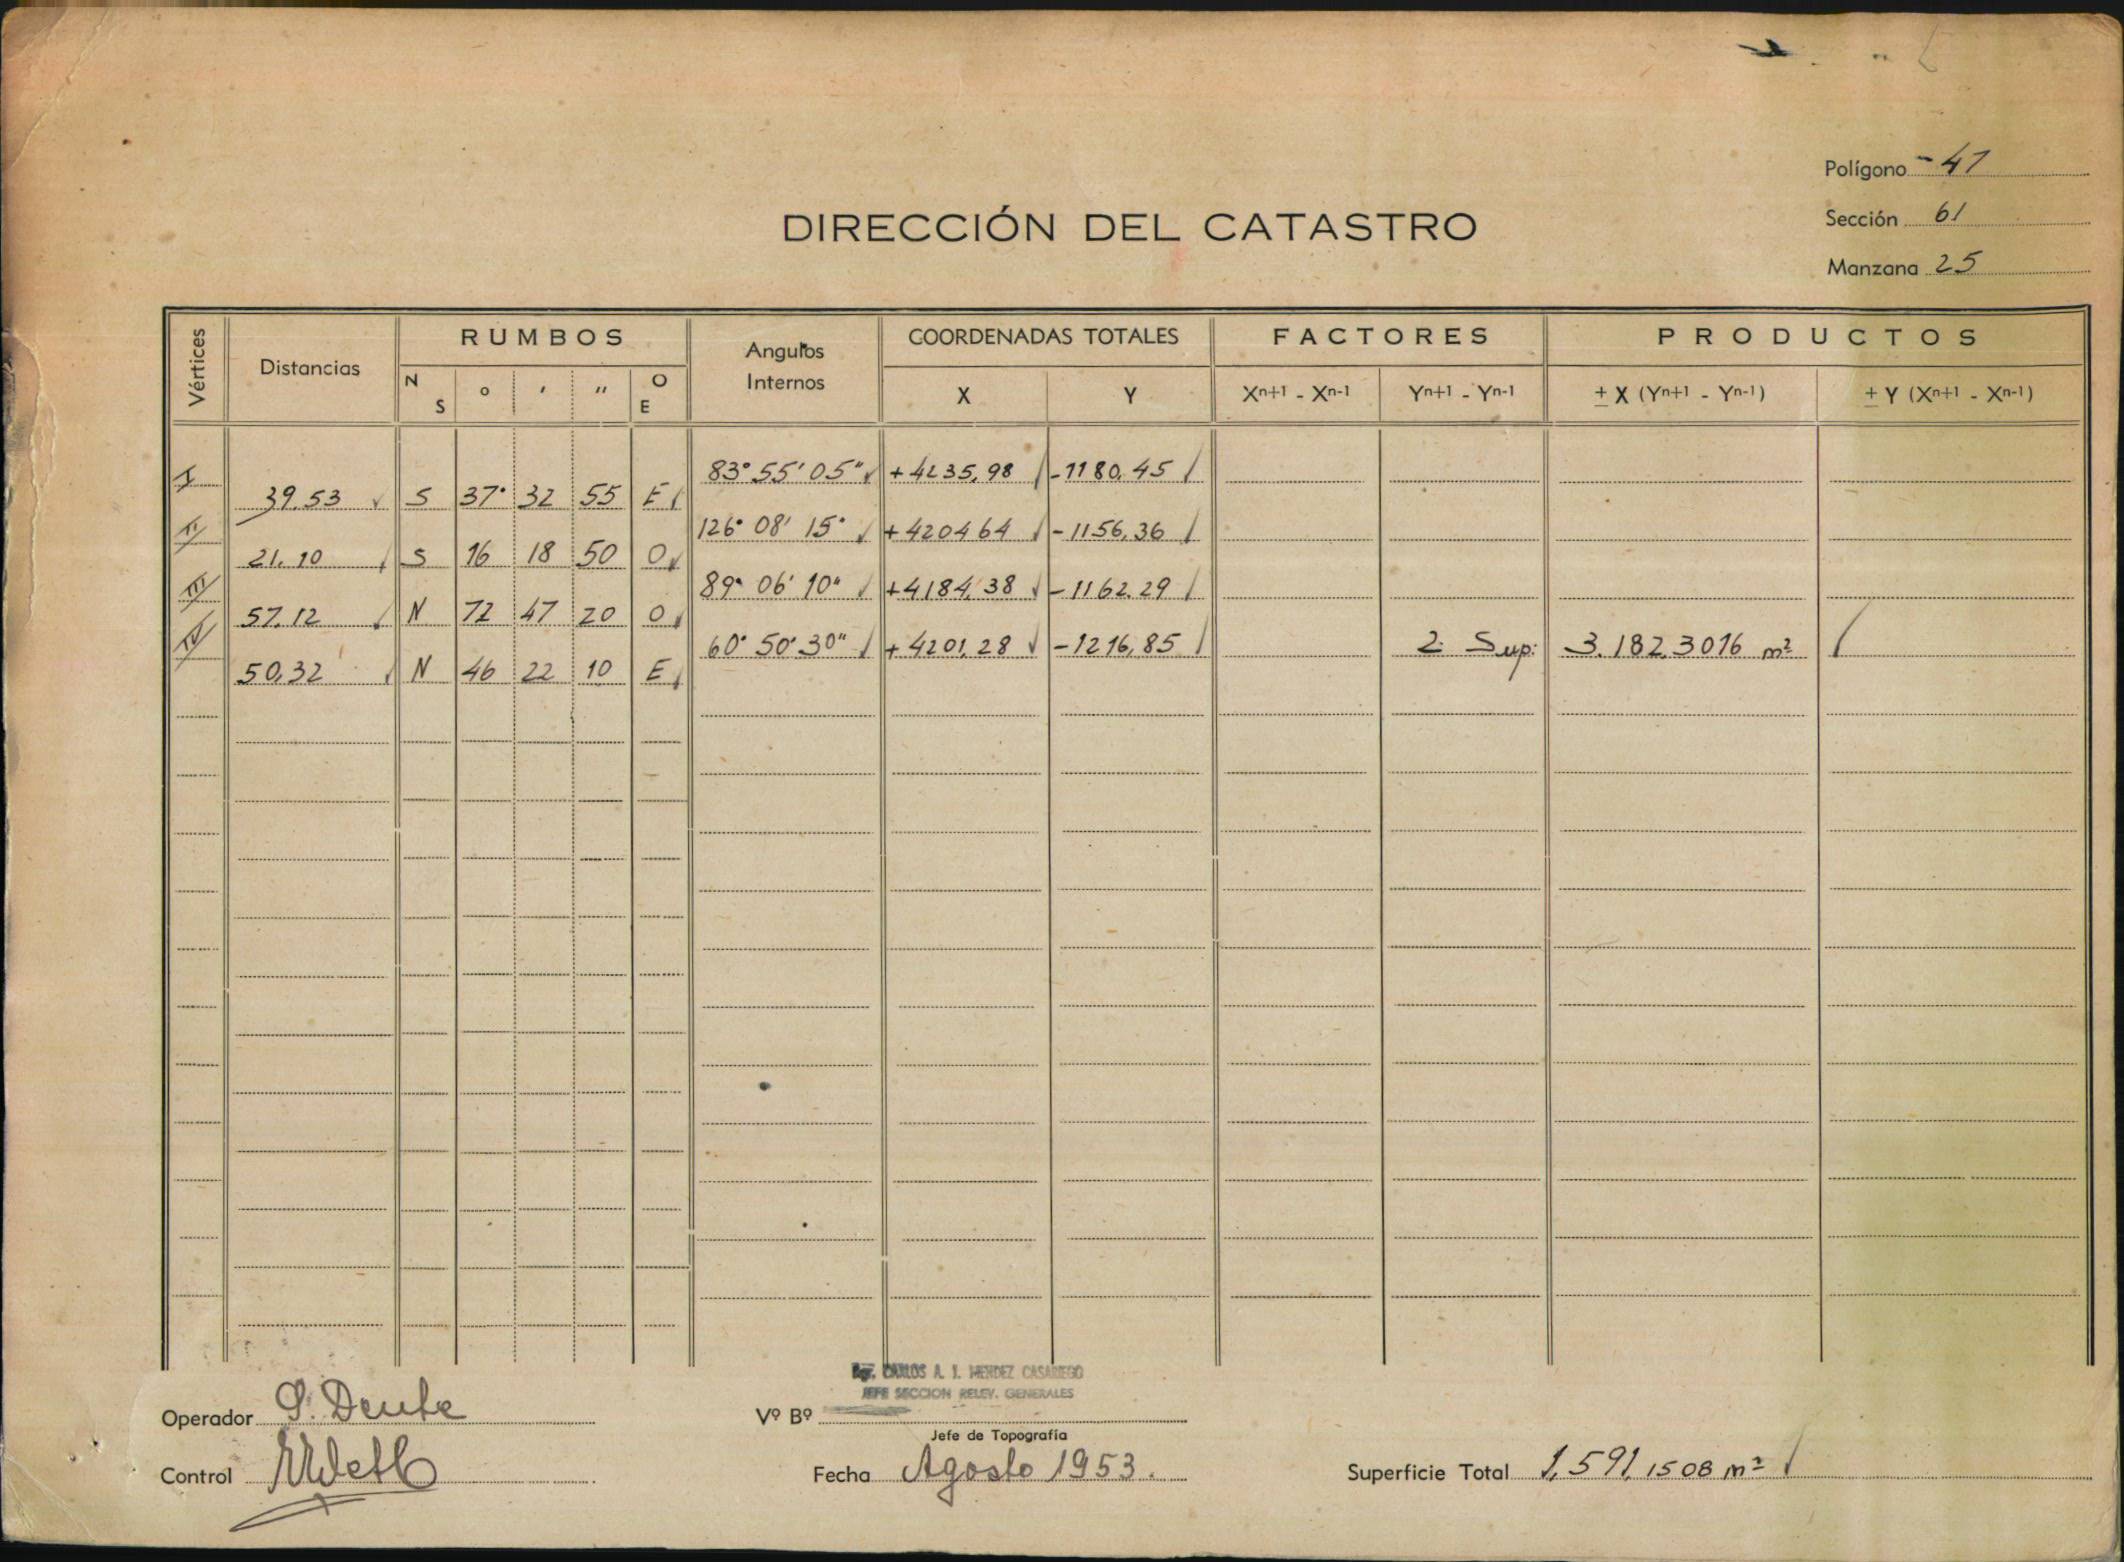 Polígono - 41
DIRECCIÓN DEL CATASTRO
Sección 61
Manzana 25
Vértices Distancias RUMBOS Angulos Internos COORDENADAS TOTALES FACTORES PRODUCTOS
N S ° ' " O E X Y Xn+1 - Xn-1 Yn+1 - Yn-1 ± X (Yn+1 - Yn-1) ± Y (Xn+1 - Xn-1)
I 83° 55' 05" +4235,98 -1180,45
39.53 S 37° 32 55 E
II 126° 08' 15" +4204 64 -1156,36
21.10 S 16 18 50 O
III 89° 06' 10" +4184,38 -1162.29
57.12 N 72 47 20 O
IV 60° 50' 30" +4201,28 -1216,85 2. Sup: 3.182,3016 m²
50,32 N 46 22 10 E
CARLOS A. J. MENDEZ CASARIEGO
JEFE SECCION RELEV. GENERALES
Operador
Vº Bº
Jefe de Topografía
Control
Fecha Agosto 1953.
Superficie Total 1,591,1508 m²